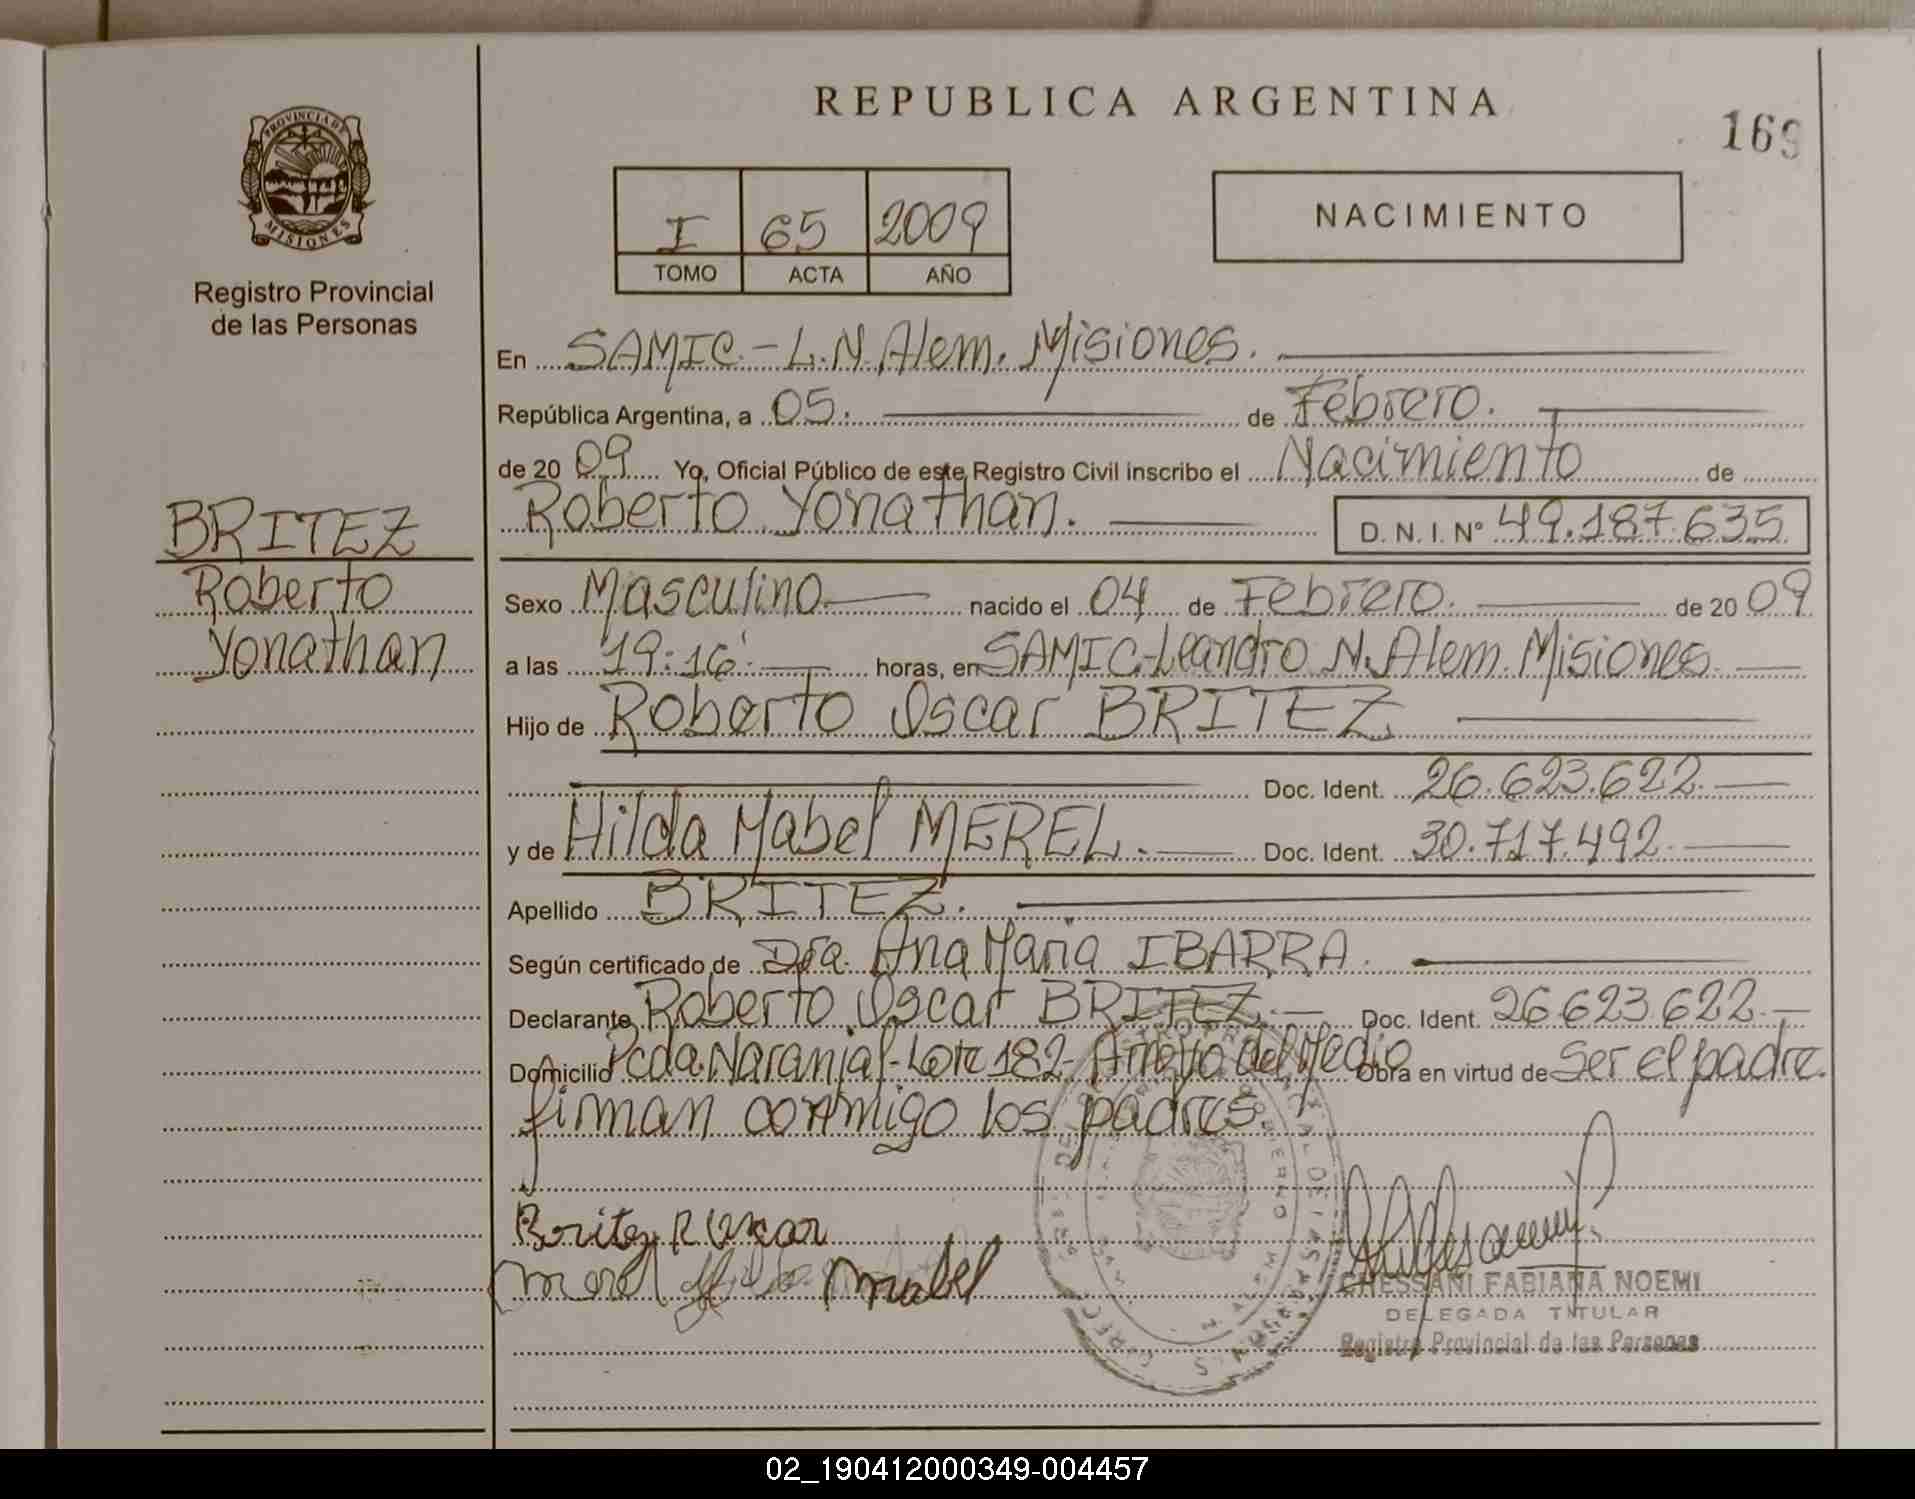 REPUBLICA ARGENTINA
169
PROVINCIA DE
MISIONES
Registro Provincial
de las Personas
I 65 2009
TOMO ACTA AÑO
NACIMIENTO
En SAMIC.-L.N.Alem. Misiones.
República Argentina, a 05. de Febrero.
de 20 09 Yo, Oficial Público de este Registro Civil inscribo el Nacimiento de
Roberto Yonathan. D. N. I. Nº 49.187.635
BRITEZ
Roberto
Yonathan
Sexo Masculino nacido el 04 de Febrero. de 20 09
a las 19:16 horas, en SAMIC-Leandro N. Alem. Misiones
Hijo de Roberto Oscar BRITEZ
Doc. Ident. 26.623.622
y de Hilda Mabel MEREL. Doc. Ident. 30.717.492
Apellido BRITEZ.
Según certificado de Dra. Ana Maria IBARRA.
Declarante Roberto Oscar BRITEZ. Doc. Ident. 26623622
Domicilio Pcda.Naranjal-Lote 182-Arroyo del Medio Obra en virtud de Ser el padre.
firman conmigo los padres.
Britez R Oscar
Merel Hilda Mabel
CHESSANI FABIANA NOEMI
DELEGADA TITULAR
Registro Provincial de las Personas
02_190412000349-004457